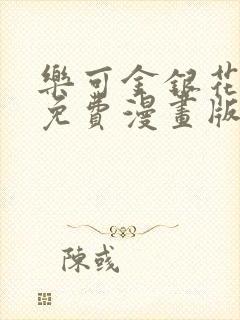 樂可金銀花
免費漫畫版
陳彧